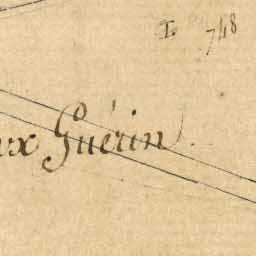 I. 748
ux Guérin